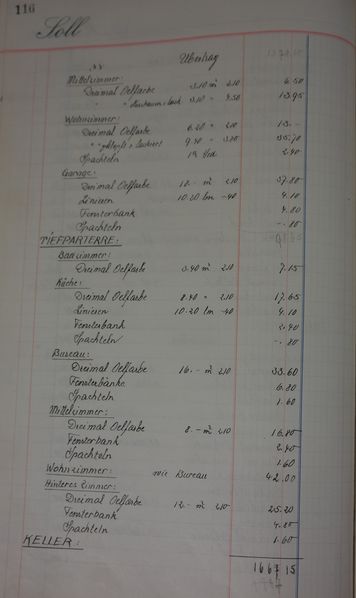 116
Soll
Übertrag
Mittelzimmer:
Dreimal Oelfarbe 3.10 m² 2.10 6.50
3.10 " 4.50 13.95
Wohnzimmer:
Dreimal Oelfarbe 6.20 " 2.10 13.-
35.70
Spachteln 1½ Std. 2.40
Garage:
Dreimal Oelfarbe 18.- m² 2.10 37.80
Linieren 10.20 lm -.40 4.10
Fensterbank 4.80
Spachteln -.80
TIEFPARTERRE:
Badzimmer:
Dreimal Oelfarbe 3.40 m² 2.10 7.15
Küche:
Dreimal Oelfarbe 8.40 " 2.10 17.65
Linieren 10.20 lm -.40 4.10
Fensterbank 2.40
Spachteln -.80
Bureau:
Dreimal Oelfarbe 16.- m² 2.10 33.60
Fensterbänke 6.80
Spachteln 1.60
Mittelzimmer:
Dreimal Oelfarbe 8.- m² 2.10 16.80
Fensterbank 2.40
Spachteln 1.60
Wohnzimmer: wie Bureau 42.00
Hinteres Zimmer:
Dreimal Oelfarbe 12.- m² 2.10 25.20
Fensterbank 4.80
Spachteln 1.60
KELLER:
1667 15